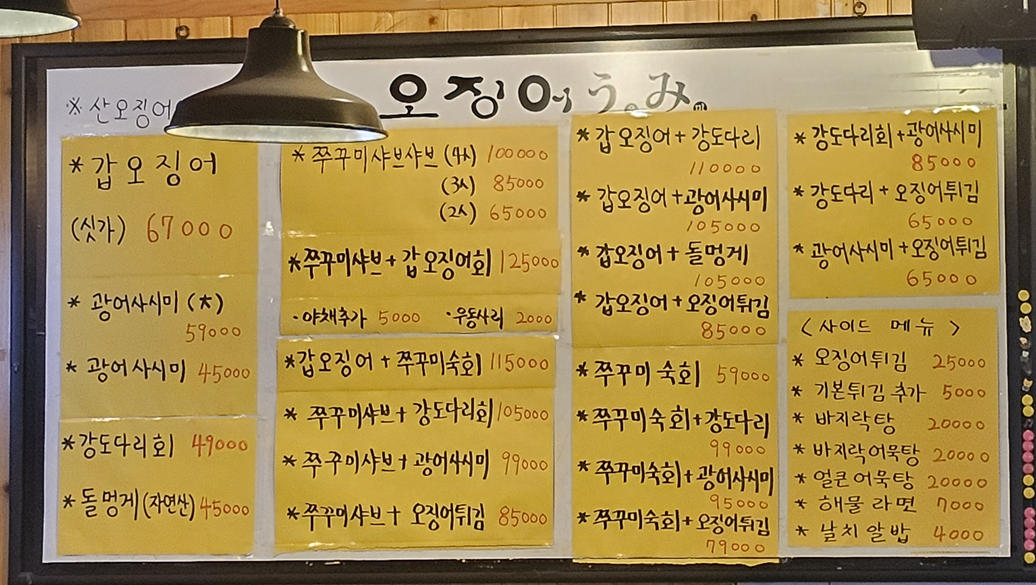 오징어うみ
※ 산오징어
* 갑오징어
(싯가) 67000
* 광어사시미 (大)
59000
* 광어사시미 45000
* 강도다리회 49000
* 돌멍게(자연산) 45000
* 쭈꾸미샤브샤브 (4人) 100000
(3人) 85000
(2人) 65000
* 쭈꾸미샤브 + 갑오징어회 125000
· 야채추가 5000 · 우동사리 2000
* 갑오징어 + 쭈꾸미숙회 115000
* 쭈꾸미샤브 + 강도다리회 105000
* 쭈꾸미샤브 + 광어사시미 99000
* 쭈꾸미샤브 + 오징어튀김 85000
* 갑오징어 + 강도다리
110000
* 갑오징어 + 광어사시미
105000
* 갑오징어 + 돌멍게
105000
* 갑오징어 + 오징어튀김
85000
* 쭈꾸미 숙회 59000
* 쭈꾸미숙회 + 강도다리
99000
* 쭈꾸미숙회 + 광어사시미
95000
* 쭈꾸미숙회 + 오징어튀김
79000
* 강도다리회 + 광어사시미
85000
* 강도다리 + 오징어튀김
65000
* 광어사시미 + 오징어튀김
65000
< 사이드 메뉴 >
* 오징어튀김 25000
* 기본튀김 추가 5000
* 바지락탕 20000
* 바지락어묵탕 20000
* 얼큰어묵탕 20000
* 해물라면 7000
* 날치알밥 4000